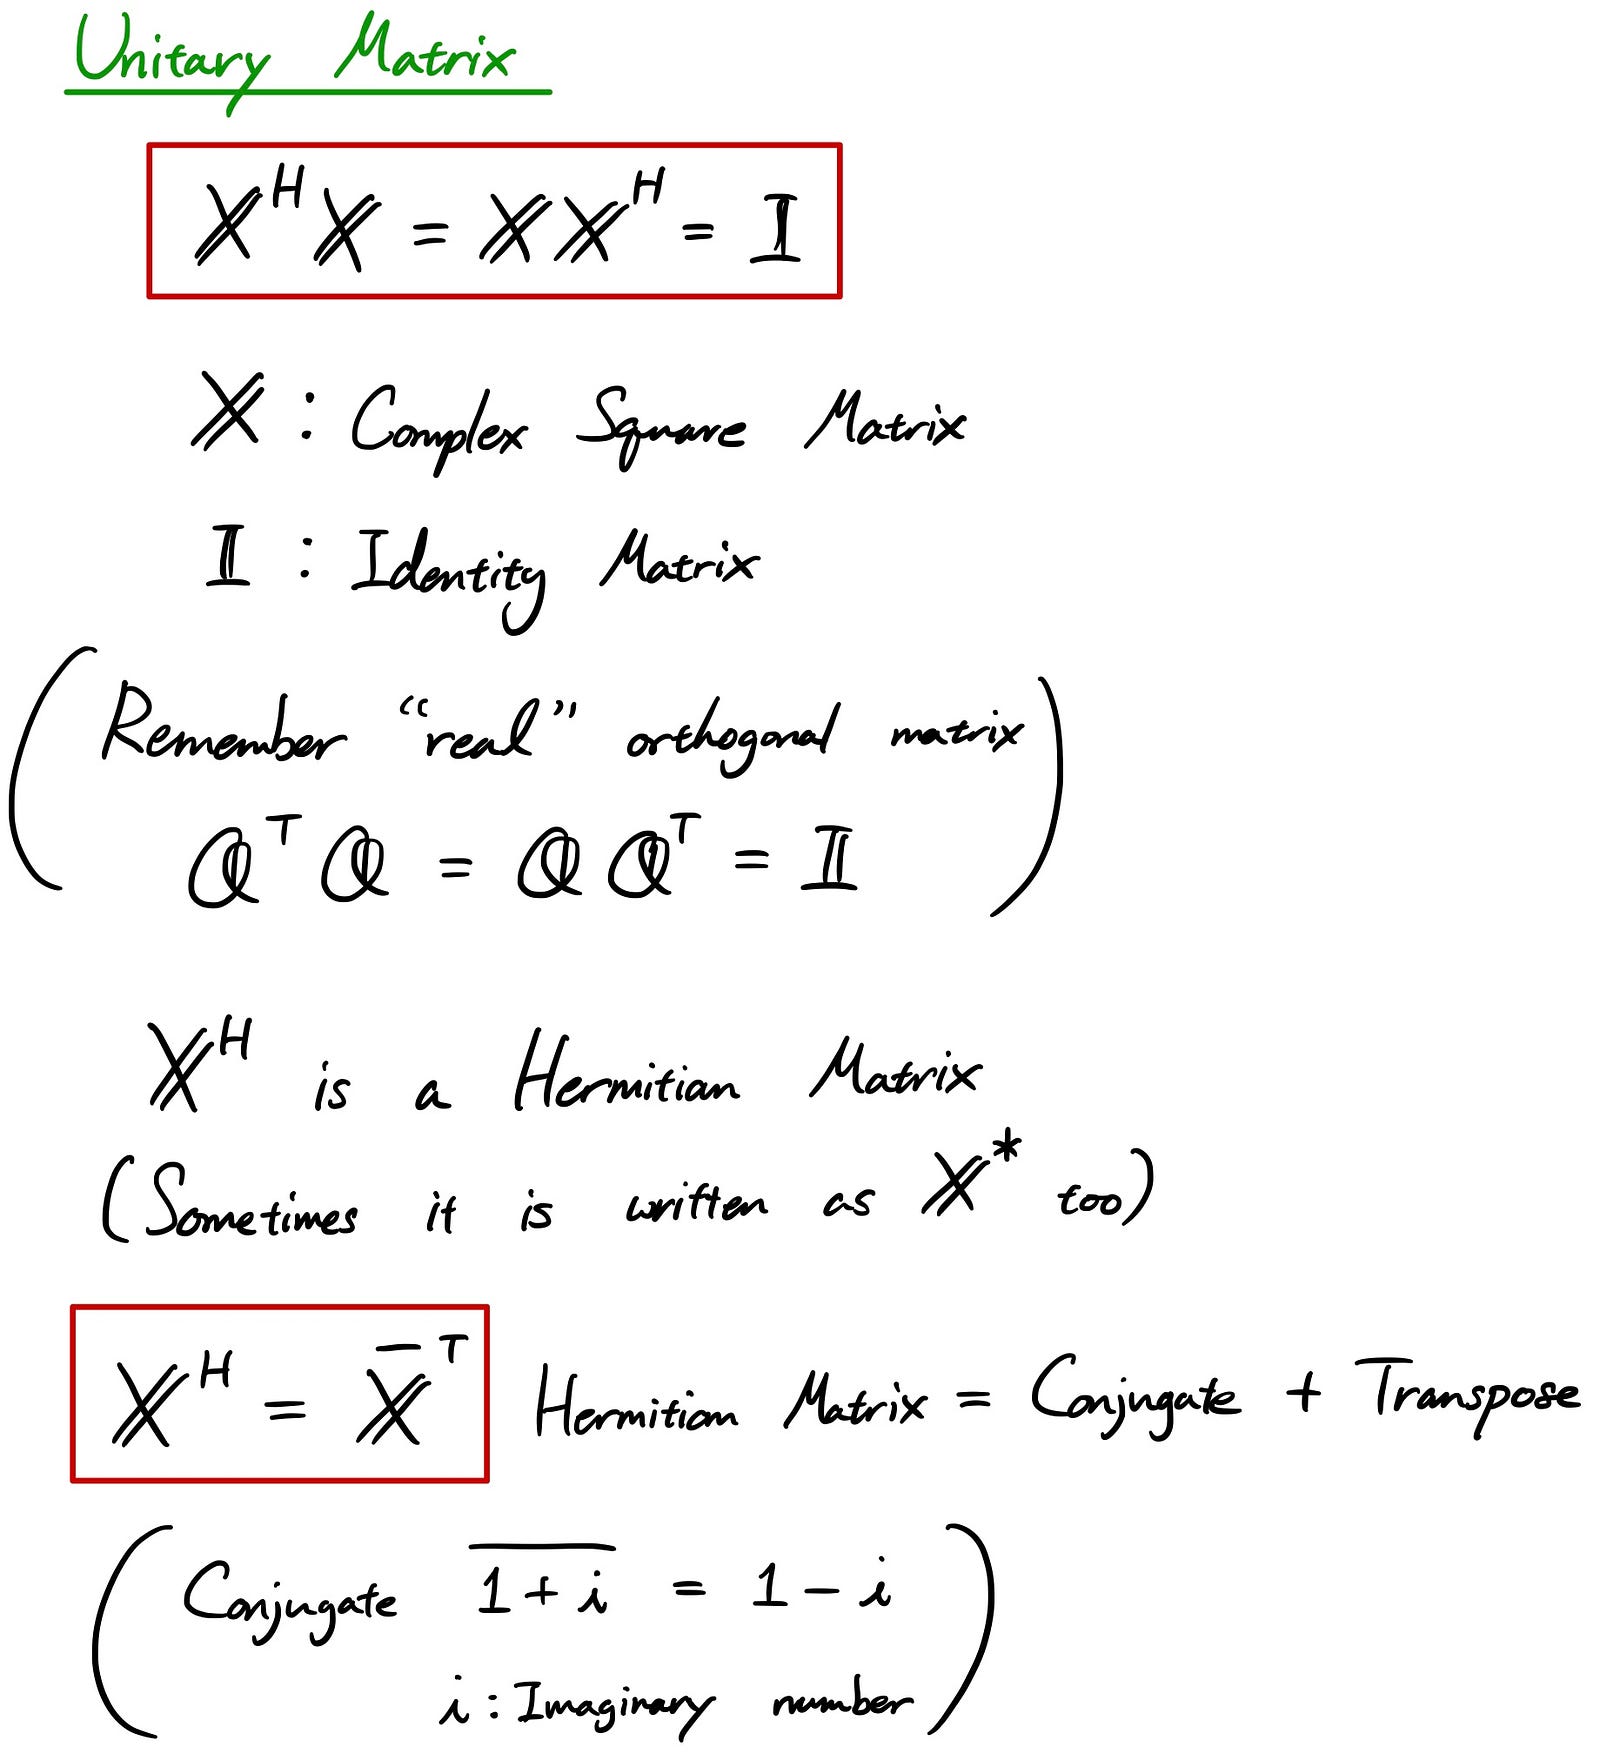 Unitary Matrix
X^H X = X X^H = I
X : Complex Square Matrix
I : Identity Matrix
(Remember “real” orthogonal matrix
Q^T Q = Q Q^T = I)
X^H is a Hermitian Matrix
(Sometimes it is written as X^* too)
X^H = X̅^T Hermitian Matrix = Conjugate + Transpose
(Conjugate \overline{1 + i} = 1 - i
i : Imaginary number)